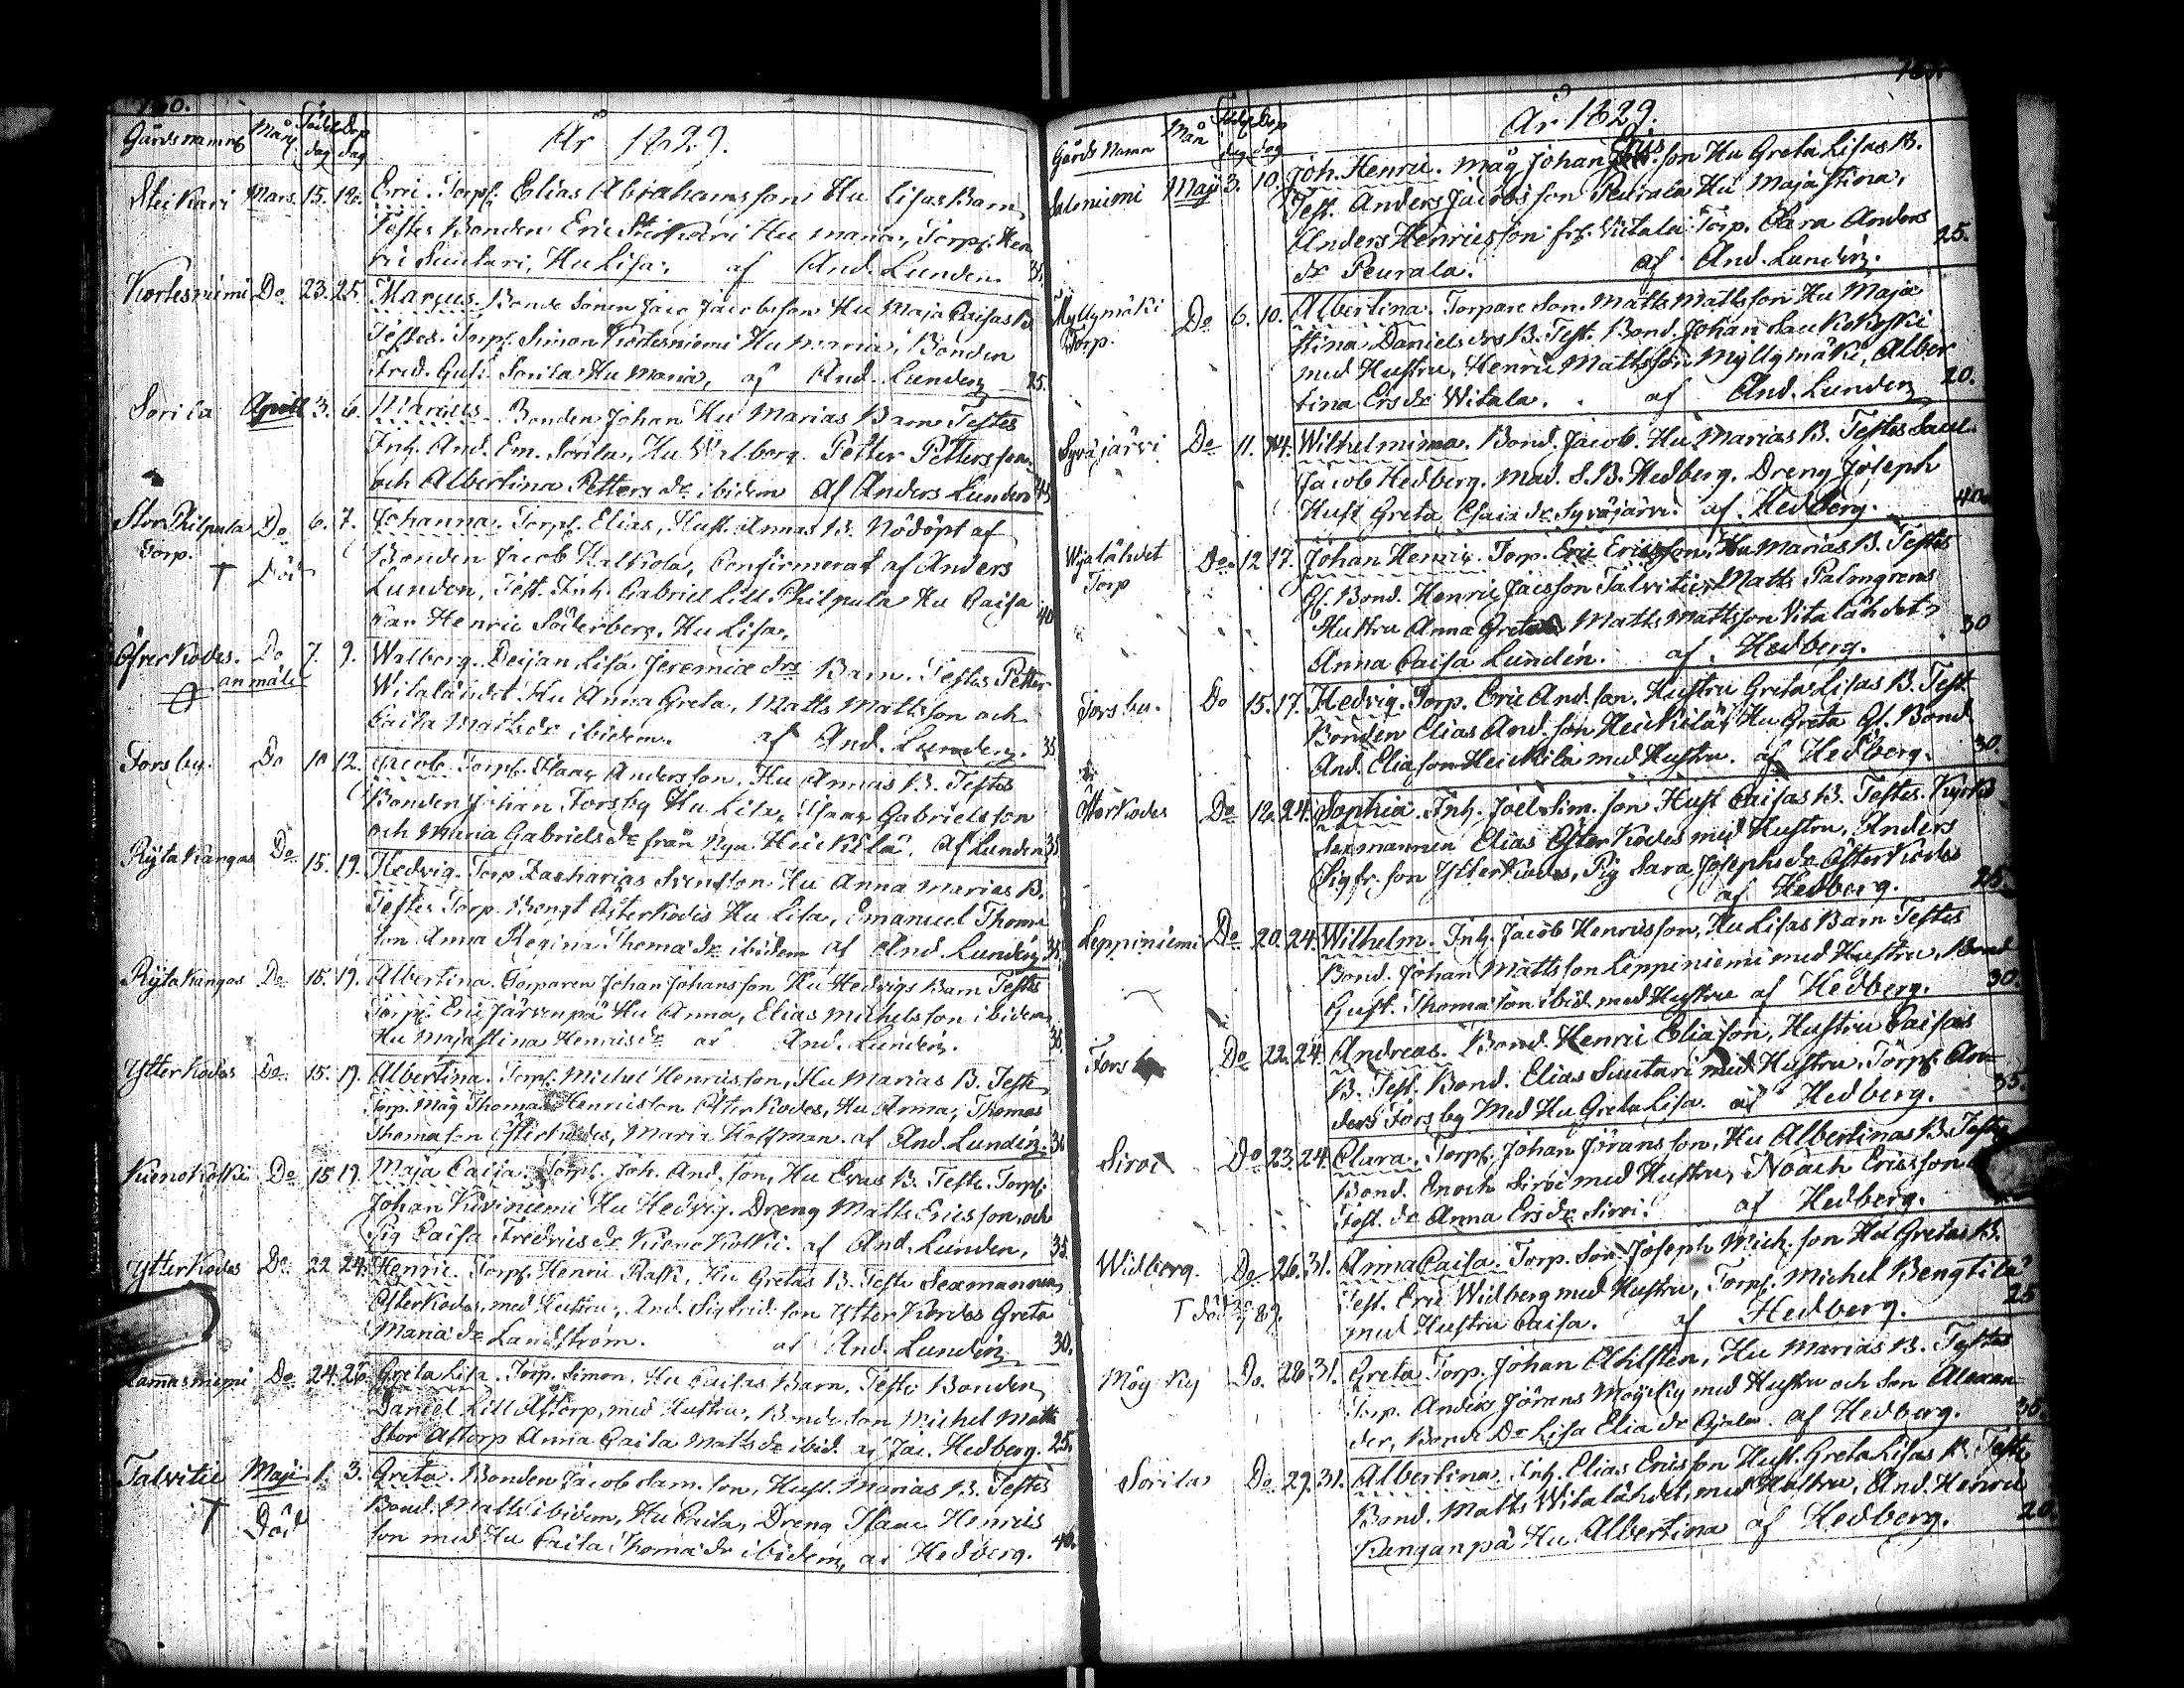 Gårdsnamn Mån Födel dag Döp dag År 1829.
Steikari Mars. 15. 19. Eric. Torp. Elias Abrahamsson Hu Lisas Barn
Testes Bonden Eric Steikari Hu Maria, Torp. Hen
ric Suutari, Hu Lisa, af And. Lunden. 35.
Kortesniemi Do 23. 25. Marcus. Bonde Sonen Jacob Jacobsson Hu Maja Caisas B.
Testes. Torp. Simon Kortesniemi Hu Maria, Bonden
Fred. Gust. Sorila Hu Maria, af And. Lunden 25.
Sorila April 3. 6. Marcus. Bonden Johan Hu Marias Barn Testes
Inh. And. Em. Sorila, Hu Walborg. Petter Pettersson
och Albertina Petters dr ibidem af Anders Lunden
Stor Philpula Do 6. 7. Johanna. Torp. Elias, Hust. Annas B. Nödöpt af
Torp. † Död Bonden Jacob Kalkola, Confirmerat af Anders
Lunden, Test. Inh. Gabriel Lill Philpula Hu Caisa 40
Henric Söderberg. Hu Lisa,
Öfver Kodes. Do 7. 9. Walborg. Deijan Lisa Jeremiæ drs Barn. Testes Petter
anmäld Witalähdet Hu Anna Greta, Matts Mattsson och
Caisa Matts dr ibidem. af And. Lunden. 35
Forsby. Do 10 12. Jacob. Torp. Isaac Andersson, Hu Annas B. Testes
Bonden Johan Forsby Hu Lisa, Isaac Gabrielsson
och Maria Gabriels dr från Nya Heickilä. Af Lunden 35
Rytakangas Do 15. 19. Hedvig. Torp. Zacharias Svensson Hu Anna Marias B.
Testes Torp. Bengt Österkodes Hu Lisa, Emanuel Thoma
son Anna Regina Thoma dr ibidem af And. Lunden 35.
Rytakangas Do 15. 19. Albertina. Torparen Johan Johansson Hu Hedvigs Barn Testes
Torp. Eric Järvenpä Hu Anna, Elias Michelsson ibidem
Hu Maja Stina Henrics dr af And. Lunden.
Ytter Kodes Do 15. 19. Albertina. Torp. Michel Henricsson, Hu Marias B. Teste
Torp. Måg Thomas Henricsson Österkodes, Hu Anna, Thomas
Thomasson Österkodes, Maria Hoffman. af And. Lunden.
Kienokoski Do 15 19. Maja Caisa. Torp. Joh. And. son, Hu Evas B. Teste. Torp.
Johan Kiviniemi Hu Hedvig. Dreng Matts Ericsson, och
Pig Caisa Fredrics dr Kienokoski. af And. Lunden, 35.
Ytter Kodes Do 22 24. Henric. Torp. Henric Rask, Hu Gretas B. Teste Sexmannen
Österkodes, med Hustru, And. Sigfrid son Ytter Kodes Greta
Maria dr Landström. af And. Lunden 30.
Do 24. 26. Greta Lisa. Torp. Simon. Hu Caisas Barn, Teste Bonden
Daniel Lill Åstorp, med Hustru, Bonde son Michel Matts
Stor Åstorp Anna Caisa Matts dr ibid. af Jac. Hedberg. 25.
Talvitie Maji 1. 3. Greta. Bonden Jacob Sam. son, Hust. Marias B. Testes
† Död Bond. Matts ibidem, Hu Caisa, Dreng Isaac Henrics
son med Hu Caisa Thoma dr ibidem, af Hedberg. 40.
Gårds Namn Mån Födel dag Döp dag År 1829.
Saloniemi Maji 3. 10. Joh. Henric. Måg Johan Ers. son Hu Greta Lisas B.
Test. Anders Jacobsson Peurala Hu Maja Stina,
Anders Henricsson Torp. Clara Anders
dr Peurala. af And. Lunden. 25.
Myllymäki Do 6. 10. Albertina. Torpare Son. Matts Mattsson Hu Maja
Torp. Stina Daniels drs B. Test. Bond. Johan Saukkokoski
med Hustru, Henric Mattsson Myllymäki, Alber
tina Ers dr Witala. af And. Lunden 20.
Syväjärvi Do 11. 14. Wilhelmina. Bond. Jacob. Hu Marias B. Testes
Jacob Hedberg. Mad. S. B. Hedberg. Dreng Joseph
Hust Greta Esaia dr Syväjärvi. af Hedberg. 40.
Wjalähdet Do 12 17. Johan Henric. Torp. Eric Ericsson, Hu Marias B. Testes
Torp Gl. Bond. Henric Jacsson Talvitie, Matts Palmgrens
Hustru Anna Greta Matts Mattsson Vitalähdet,
Anna Caisa Lunden. af. Hedberg. 30
Forsby. Do 15. 17. Hedvig. Torp. Eric And. son. Hustru Greta Lisas B. Test.
Bonden Elias And. son Heickilä, Hu Greta Gl. Bond.
And. Eliasson Heickilä med Hustru. af Hedberg. 30.
Öfterkodes Do 12. 24. Sophia. Inh. Joel Sim. son Hust Caisas B. Testes. Kyrko
Sexmannen Elias Österkodes med Hustru, Anders
Sigfr. son Ytterkodes, Pig Sara Josephs dr Österkodes
af Hedberg. 25.
Leppiniemi Do 20. 24. Wilhelm. Inh. Jacob Henricsson, Hu Lisas Barn Testes
Bond. Johan Mattsson Leppiniemi med Hustru, Bond
Gust. Thomasson ibid. med Hustru af Hedberg. 30.
Fors Do 22. 24. Andreas. Bond. Henric Eliasson, Hustru Caisas
B. Test. Bond. Elias Suutari med Hustru, Torp. An
ders Forsby Med Hu Greta Lisa. af Hedberg. 35.
Siroi Do 23. 24. Clara. Torp. Johan Jörans son, Hu Albertinas B. Testes
Bond. Enoch Siroi med Hustru, Noach Ericsson
dr Anna Ers dr Siroi. af Hedberg.
Widberg. Do 26. 31. Anna Caisa. Torp. Son Joseph Mich. son Hu Gretas B.
† död Test. Eric Widberg med Hustru, Torp. Michel Bengtila
med Hustru Caisa. af Hedberg. 25
Do. 28 31. Greta Torp. Johan Ahlsten, Hu Marias B. Testes
Torp. Anders Jörans med Hustru och Son Alexan
der, Bonde Dr Lisa Elia dr af Hedberg. 35.
Sorila Do 29. 31. Albertina. Inh. Elias Ericsson Hust. Greta Lisas B. Teste
Bond. Matts Witalähdet, med Hustru, And. Henric
Kanganpä Hu. Albertina af Hedberg. 20.